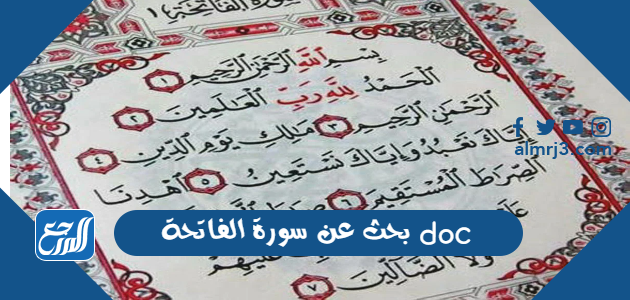 سورة الفاتحة ١
بِسْمِ ٱللَّهِ ٱلرَّحْمَٰنِ ٱلرَّحِيمِ ١
ٱلْحَمْدُ لِلَّهِ رَبِّ ٱلْعَٰلَمِينَ ٢
ٱلرَّحْمَٰنِ ٱلرَّحِيمِ ٣ مَٰلِكِ يَوْمِ ٱلدِّينِ ٤
إِيَّاكَ نَعْبُدُ وَإِيَّاكَ نَسْتَعِينُ ٥ ٱهْدِنَا
ٱلصِّرَٰطَ ٱلْمُسْتَقِيمَ ٦
عَلَيْهِمْ
وَلَا ٱلضَّآلِّينَ ٧
almrj3.com
بحث عن سورة الفاتحة doc
المرجع